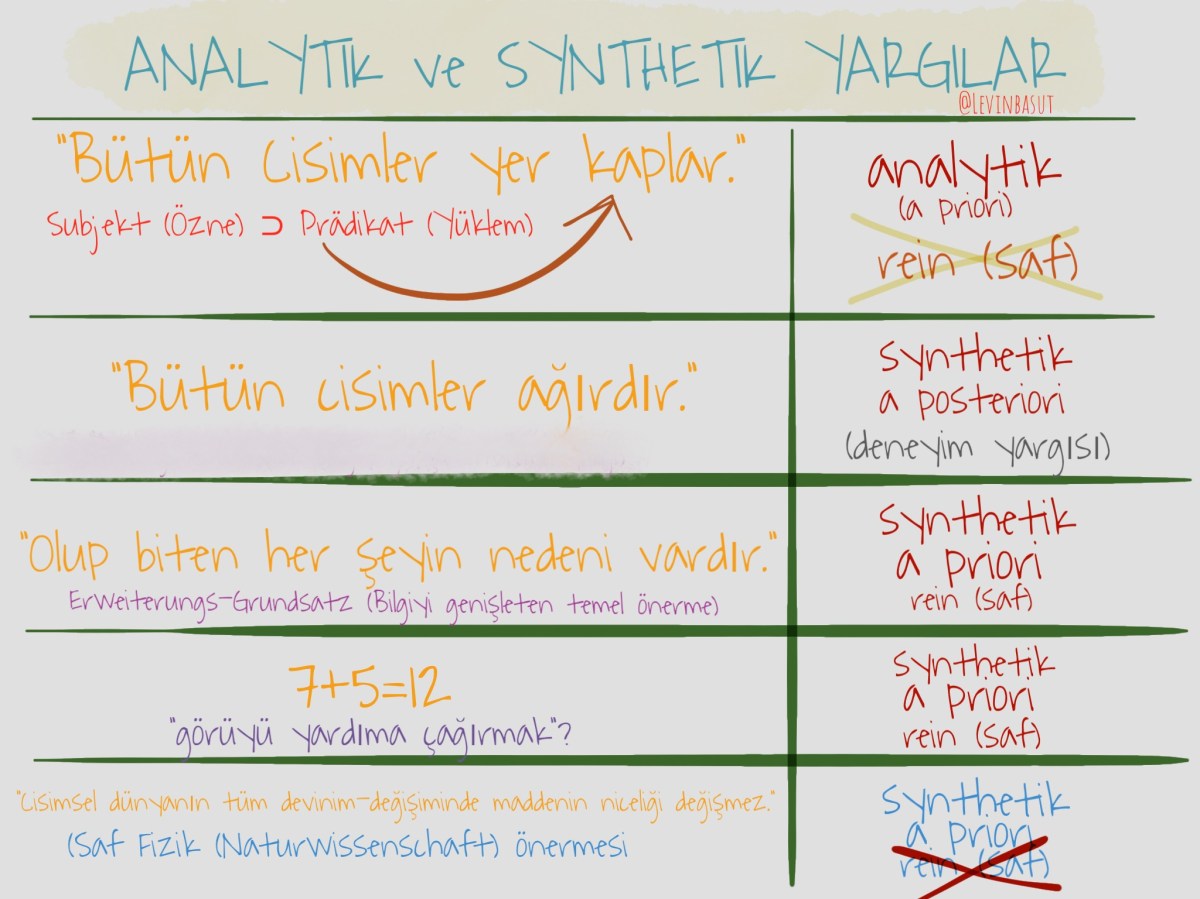 ANALYTIK ve SYNTHETIK YARGILAR
@LEVINBASUT
"Bütün Cisimler yer kaplar."
Subjekt (Özne) ⊃ Prädikat (Yüklem)
analytik
(a priori)
rein (saf)
"Bütün cisimler ağırdır."
synthetik
a posteriori
(deneyim yargısı)
"Olup biten her şeyin nedeni vardır."
Erweiterungs-Grundsatz (Bilgiyi genişleten temel önerme)
synthetik
a priori
rein (saf)
7+5=12
"görüyü yardıma çağırmak"?
synthetik
a priori
rein (saf)
"Cisimsel dünyanın tüm devinim-değişiminde maddenin niceliği değişmez."
(Saf Fizik (Naturwissenschaft) önermesi
synthetik
a priori
rein (saf)